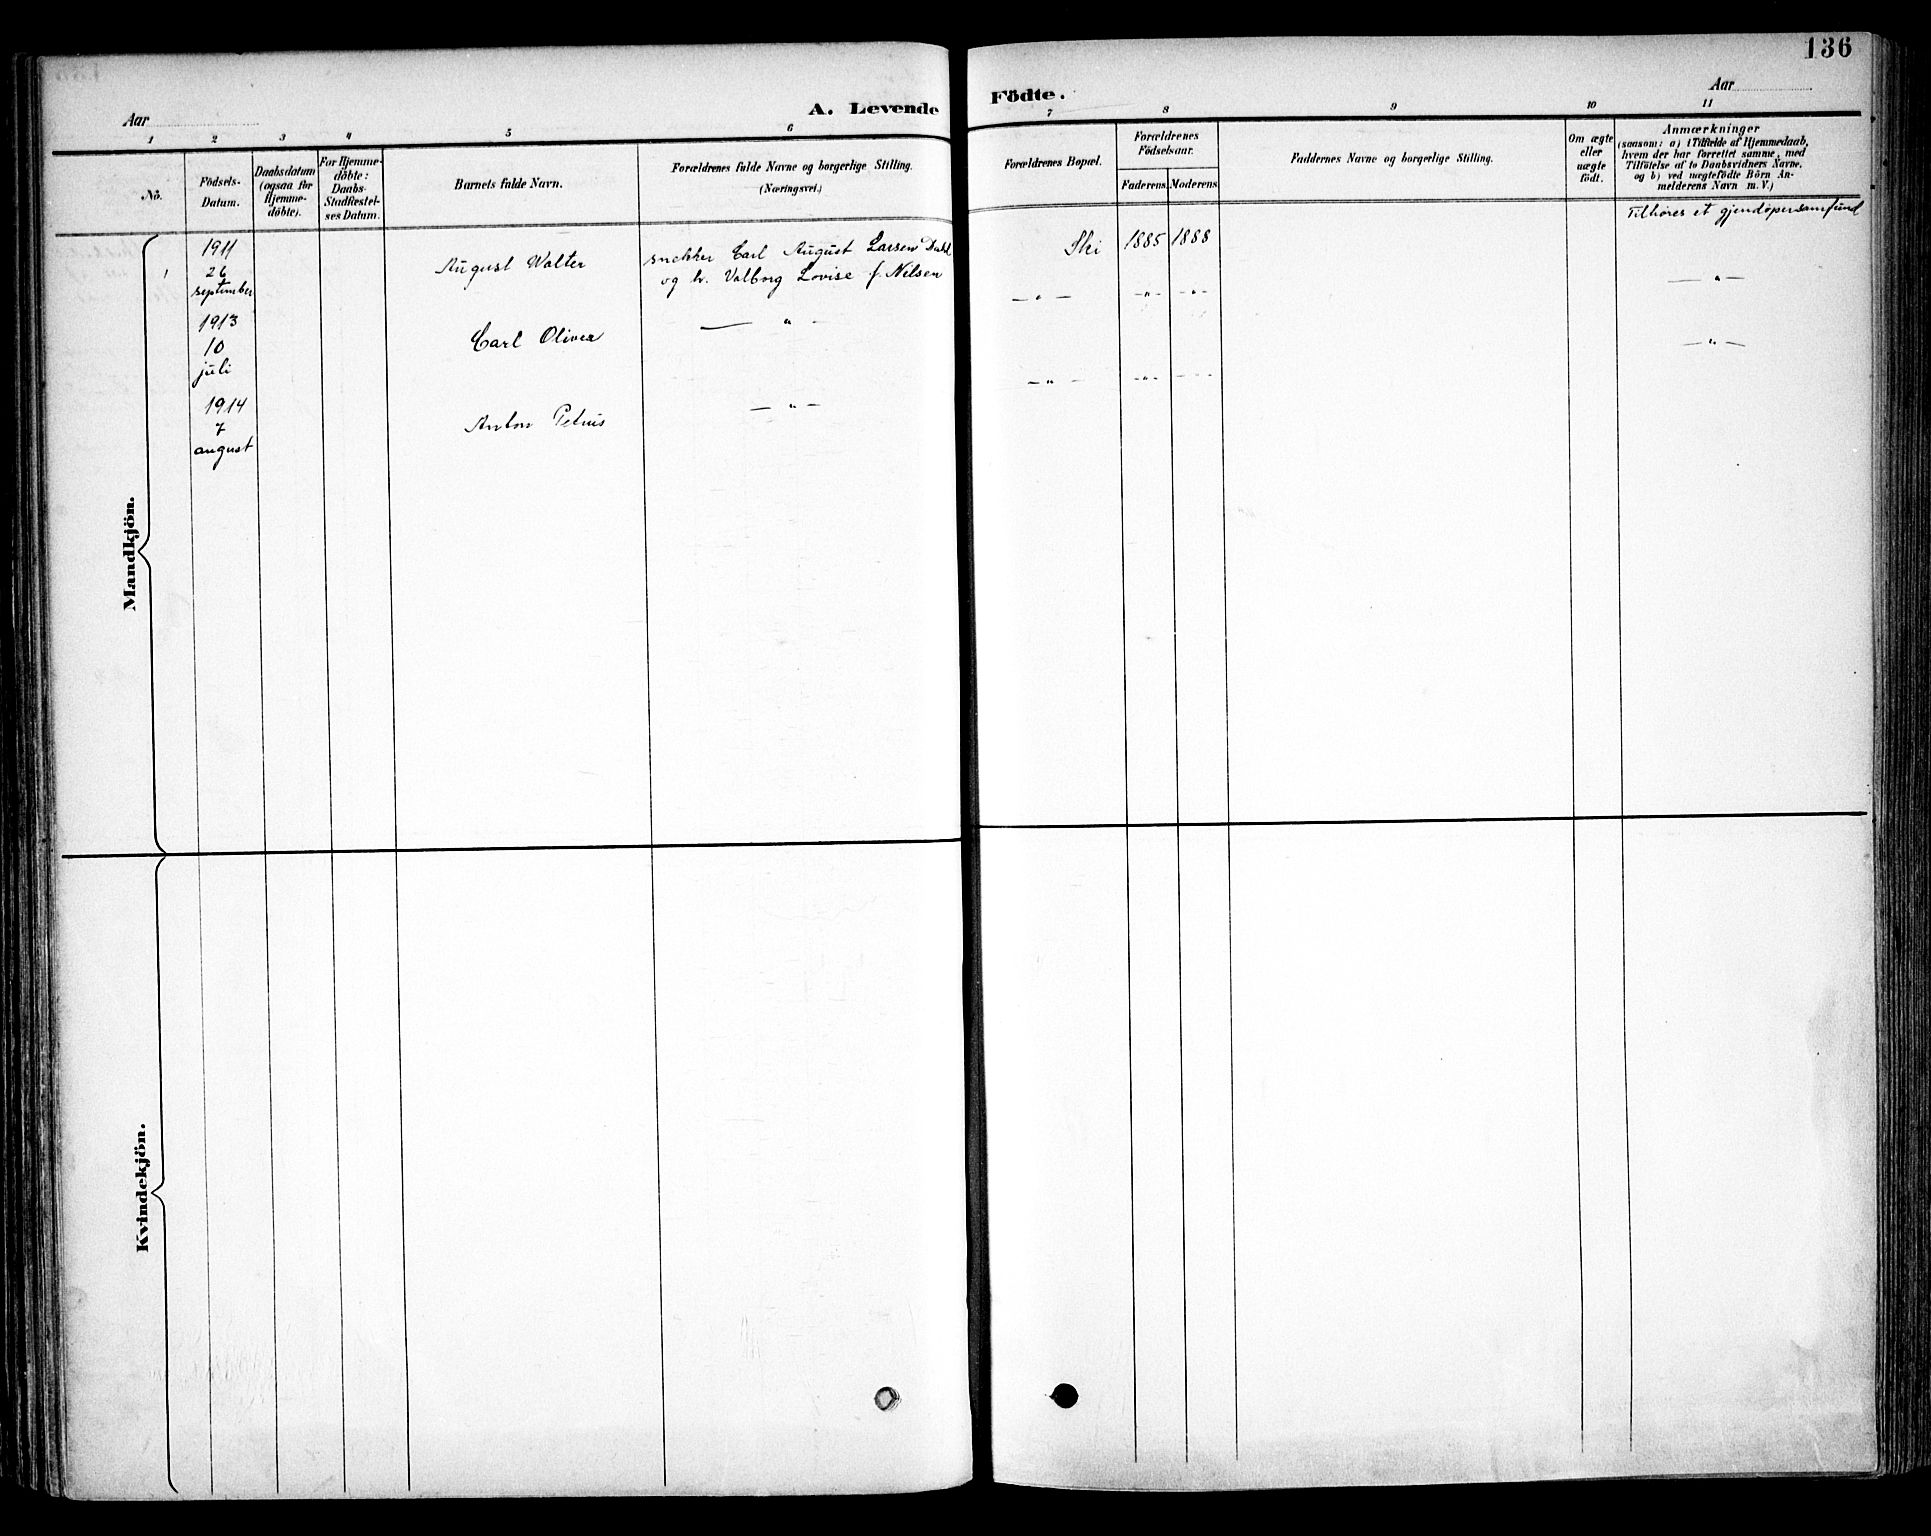 136
Aar
A. Levende
Födte.
Aar
1 2 3 4 5 6 7 8 9 10 11
No.
Födsels-
Datum.
Daabsdatum
(ogsaa for
Hjemme-
döbte).
For Hjemme-
döbte:
Daabs-
Stadfæstel-
ses Datum.
Barnets fulde Navn.
Forældrenes fulde Navne og borgerlige Stilling.
(Næringsvei.)
Forældrenes Bopæl.
Forældrenes
Födselsaar.
Faderens. Moderens.
Faddernes Navne og borgerlige Stilling.
Om ægte
eller
uægte
födt.
Anmærkninger
(saasom: a) i Tilfælde af Hjemmedaab,
hvem der har forrettet samme, med
Tilföielse af to Daabsvidners Navne,
og b) ved uægtefödte Börn An-
melderens Navn m. V.)
Mandkjön.
1
1911
26
september
August Walter
snekker Carl August Larsen Dahl
og h. Valborg Lovise f. Nelsen
Ski
1885 1888
Tilhøres et gjendøpersamfund
1913
10
juli
Carl Oliver
— " —
— " —
— " — — " —
— " —
1914
7
august
Anton Petrus
— " —
— " —
— " — — " —
— " —
Kvindekjön.